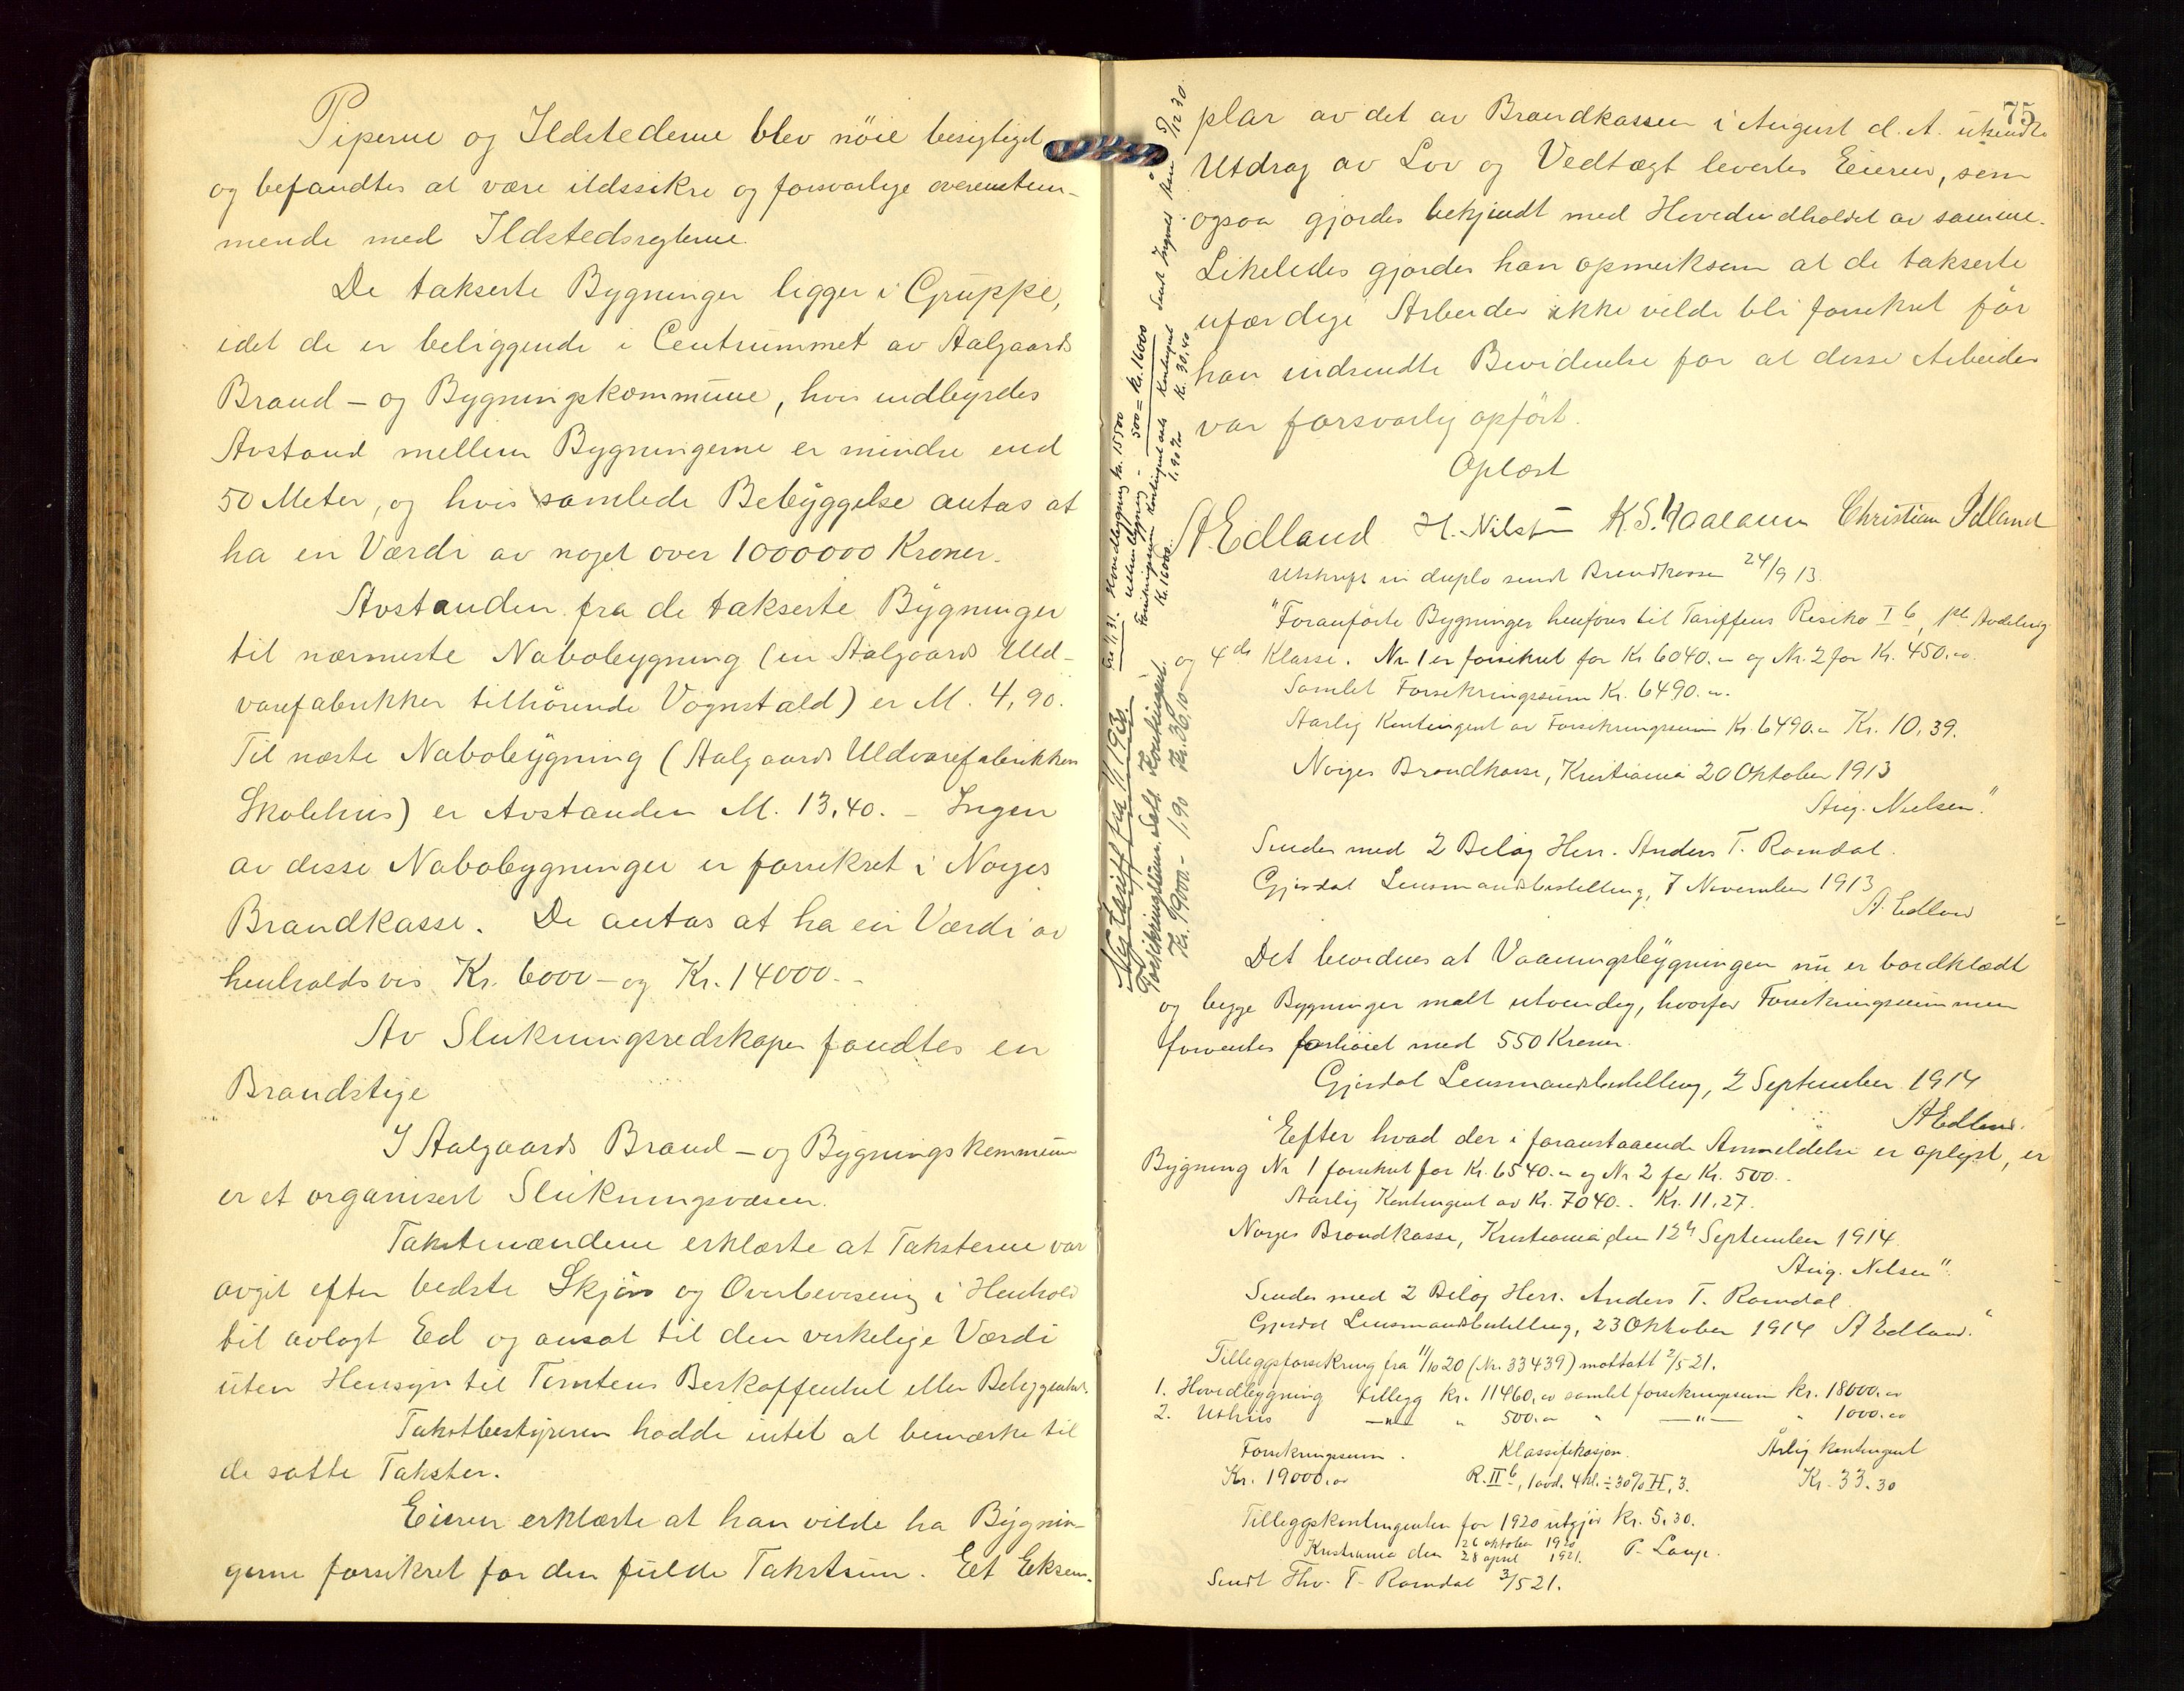 Piperne og Ildstederne blev nöie besigtiget
og befandtes at være ildssikre og forsvarlige overenstem-
mende med Ildstedsreglerne.
De takserte Bygninger ligger i Gruppe,
idet de er beliggende i Centrummet av Aalgaards
Brand- og Bygningskommune, hvis indbyrdes
Avstand mellem Bygningerne er mindre end
50 Meter, og hvis samlede Bebyggelse antas at
ha en Værdi av noget over 1000000 Kroner.
Avstanden fra de takserte Bygninger
til nærmeste Nabobygning (en Aalgaards Uld-
varefabrikker tilhörende Vognstald) er M. 4,90.
Til næste Nabobygning (Aalgaards Uldvarefabrikkers
Skolehus) er Avstanden M. 13,40. - Ingen
av disse Nabobygninger er forsikret i Norges
Brandkasse. De antas at ha en Værdi av
henholdsvis Kr. 6000 - og Kr. 14000.-
Av Slukningsredskaper fandtes en
Brandstige
I Aalgaards Brand- og Bygningskommune
er et organisert Slukningsvæsen.
Takstmændene erklærte at Taksterne var
avgit efter bedste Skjön og Overbevisning i Henhold
til avlagt Ed og ansat til den virkelige Værdi
uten Hensyn til Tomtens Beskaffenhet eller Beliggenhet.
Takstbestyreren hadde intet at bemærke til
de satte Takster.
Eieren erklærte at han vilde ha Bygnin-
gerne forsikret for den fulde Takstsum. Eet Eksem-
75
plar av det av Brandkassen i August d. A. utsendte
Utdrag av Lov og Vedtægt levertes Eieren, som
ogsaa gjordes bekjendt med Hovedindholdet av samme.
Likeledes gjordes han opmerksom at de takserte
ufærdige Arbeider ikke vilde bli forsikret för
han indsendte Bevidnelse for at disse Arbeider
var forsvarlig opfört.
Oplæst
A. Edland H. Nilsen K. S. Christian Idland
Utskrift in duplo sendt Brandkassen 24/9 13.
"Foranförte Bygninger henföres til Tariffens Risiko I b, 1ste Avdeling
og 4de Klasse. Nr. 1 er forsikret for Kr. 6040.- og Nr. 2 for Kr. 450.00
Samlet Forsikringssum Kr. 6490.-
Aarlig Kontingent av Forsikringssum Kr. 6490.- Kr. 10,39.
Norges Brandkasse, Kristiania 20 Oktober 1913
Aug. Nielsen"
Sendes med 2 Bilag Herr. Anders T. Ramdal.
Gjesdal Lensmandsbestilling, 7 November 1913
A. Edland
Det bevidnes at Vaaningsbygningen nu er bordklædt
og begge Bygninger malt utvendig, hvorfor Forsikringssummen
forventes forhöiet med 550 Kroner.
Gjesdal Lensmandsbestilling, 2 September 1914
A Edland.
"Efter hvad der i foranstaaende Anmeldelse er oplyst, er
Bygning Nr 1 forsikret for Kr. 6540.- og Nr 2 for Kr. 500.-
Aarlig Kontingent av Kr. 7040.- Kr. 11.27.
Norges Brandkasse, Kristiania den 12te September 1914.
Aug. Nielsen"
Sendes med 2 Bilag Herr. Anders T. Ramdal.
Gjesdal Lensmandsbestilling, 23 Oktober 1914 A Edland."
Tilleggsforsikring fra 11/10 20 (Nr. 33439) mottatt 2/5 21.
1. Hovedbygning tillegg kr. 11460,00 samlet forsikringssum kr. 18000.00
2. Uthus —"— " 500.00 " —"— " 1000.00
Forsikringssum. Klassifikasjon. Årlig kontingent
Kr. 19000.00 R. II b, 1 avd. 4 kl. ÷ 30% H, 3. Kr. 33.30
Tilleggskontingenten for 1920 utgjör kr. 5.30.
Kristiania den 26 oktober 1920 P. Lange.
28 april 1921.
Sendt Thv. T. Ramdal 3/5 21.
Ny tariff fra 1/1 1923.
Forsikringssum. Sats. Kontingent
Kr. 19000.- 1,90 Kr. 36,10
Fra 1/1 31. Hovedbygning kr. 15500
Uthusbygning - 500 = kr. 16000
Forsikringssum Kontingentsats Kontingent
Kr. 16000.- 1,90 ‰ Kr. 30,40
5/12 30